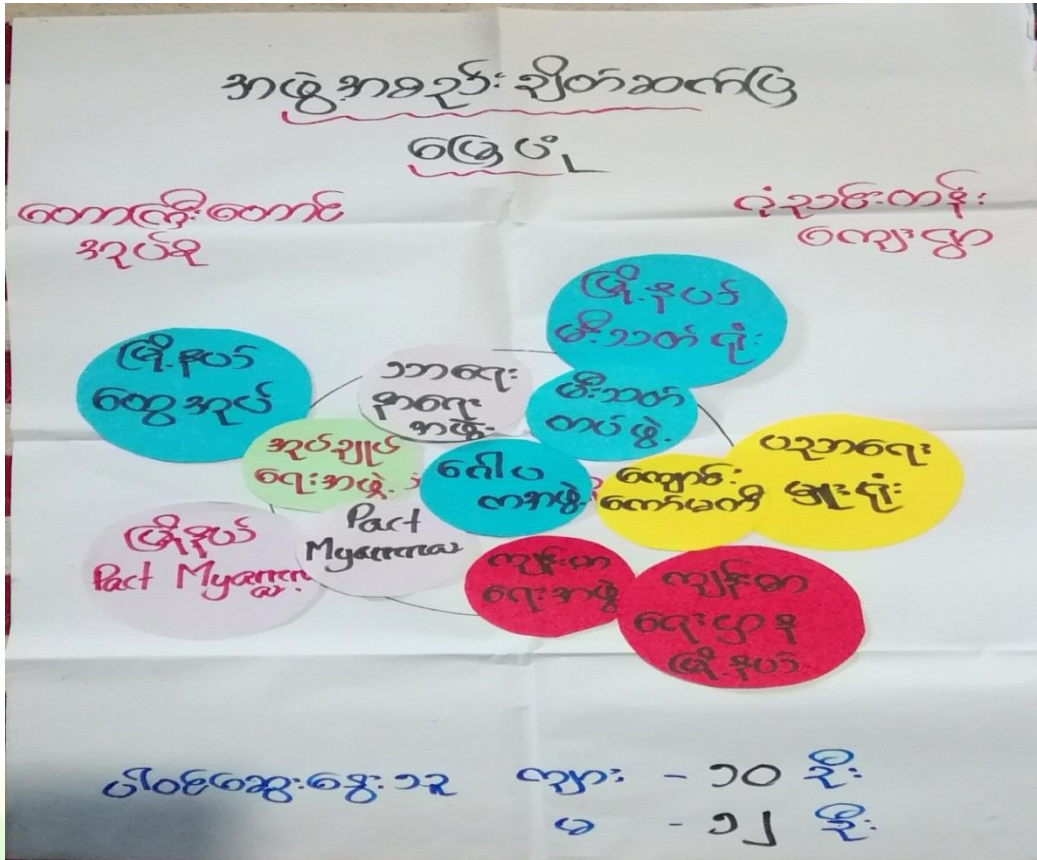 အဖွဲ့အစည်းချိတ်ဆက်ပြ
မြေပုံ
တောကြီးတောင်
အုပ်စု
ဂုံညင်းတန်း
ကျေးရွာ
မြို့နယ်
မီးသတ်ရုံး
မြို့နယ်
ထွေအုပ်
သာရေး
နာရေး
အဖွဲ့
မီးသတ်
တပ်ဖွဲ့
အုပ်ချုပ်
ရေးအဖွဲ့
ဂေါပ
ကအဖွဲ့
ကျောင်း
ကော်မတီ
ပညာရေး
မှူးရုံး
မြို့နယ်
Pact Myanmar
Pact
Myanmar
ကျန်းမာ
ရေးအဖွဲ့
ကျန်းမာ
ရေးဌာန
မြို့နယ်
ပါဝင်ဆွေးနွေးသူ ကျား - ၁၀ ဦး
မ - ၁၂ ဦး